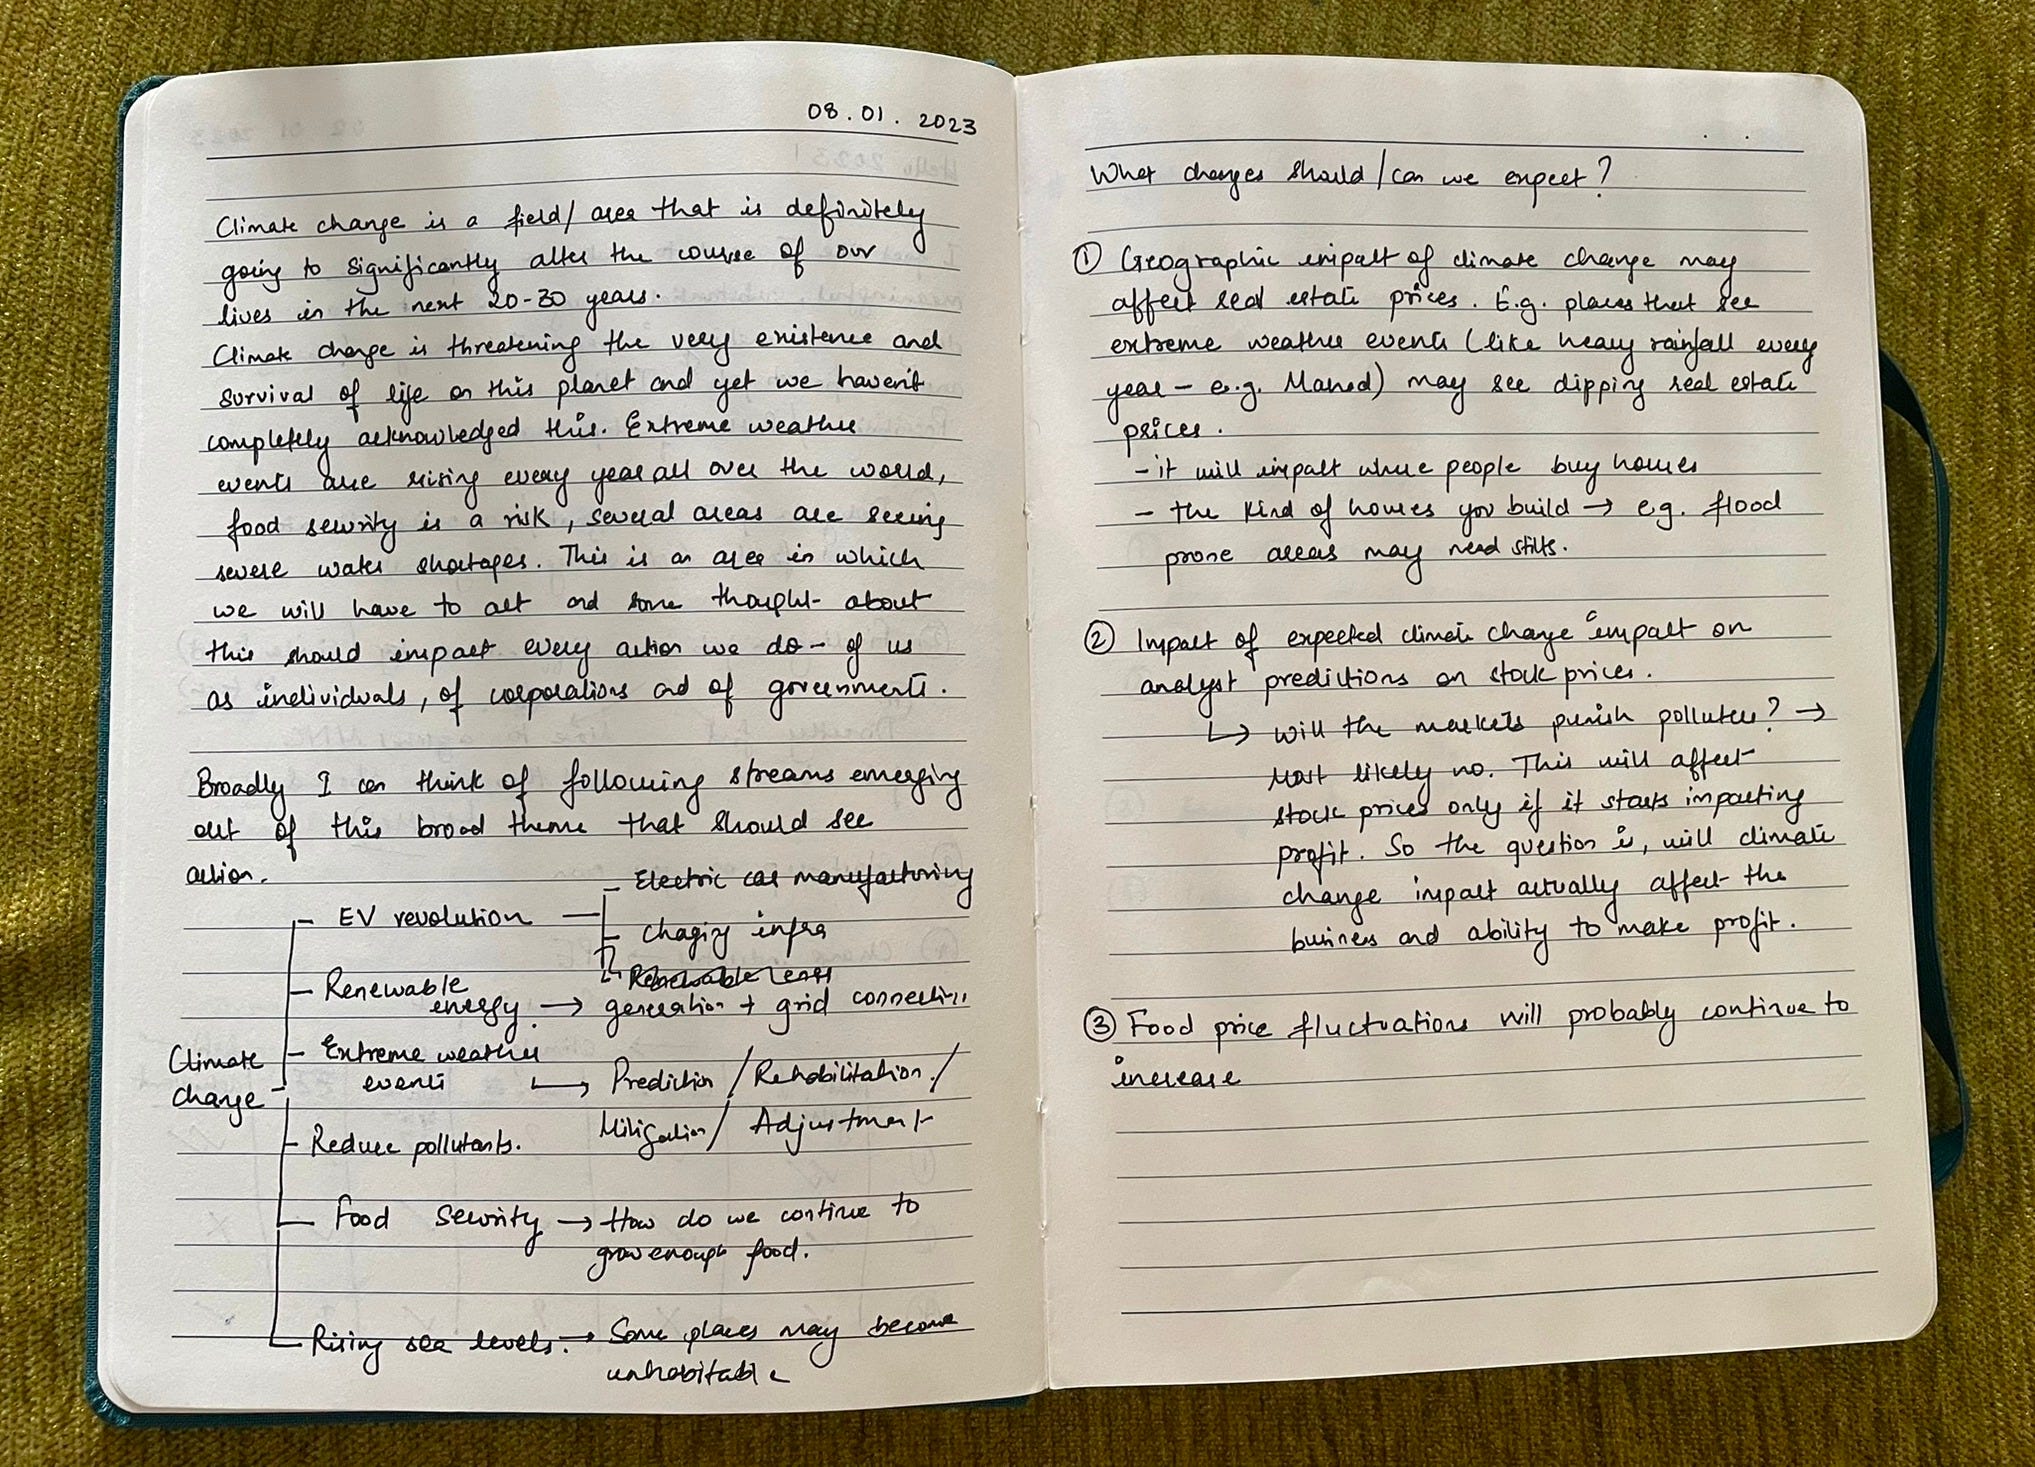 08.01.2023
Climate change is a field/area that is definitely
going to significantly alter the course of our
lives in the next 20-30 years.
Climate change is threatening the very existence and
survival of life on this planet and yet we haven't
completely acknowledged this. Extreme weather
events are rising every year all over the world,
food security is a risk, several areas are seeing
severe water shortages. This is an area in which
we will have to act and some thought about
this should impact every action we do - of us
as individuals, of corporations and of governments.
Broadly I can think of following streams emerging
out of this broad theme that should see
action.
Climate change
EV revolution - Electric car manufacturing
- Chaging infra
Renewable
energy. → generation + grid connection
Extreme weather
events → Prediction / Rehabilitation /
Mitigation / Adjustment
Reduce pollutants.
Food security → How do we continue to
grow enough food.
Rising sea levels. → Some places may become
unhabitable
What changes should/can we expect?
① Geographic impact of climate change may
affect real estate prices. E.g. places that see
extreme weather events (like heavy rainfall every
year - e.g. Mahad) may see dipping real estate
prices.
- it will impact where people buy homes
- the kind of homes you build → e.g. flood
prone areas may need stilts.
② Impact of expected climate change impact on
analyst predictions on stock prices.
↳ will the markets punish polluters? →
Most likely no. This will affect
stock prices only if it starts impacting
profit. So the question is, will climate
change impact actually affect the
business and ability to make profit.
③ Food price fluctuations will probably continue to
increase